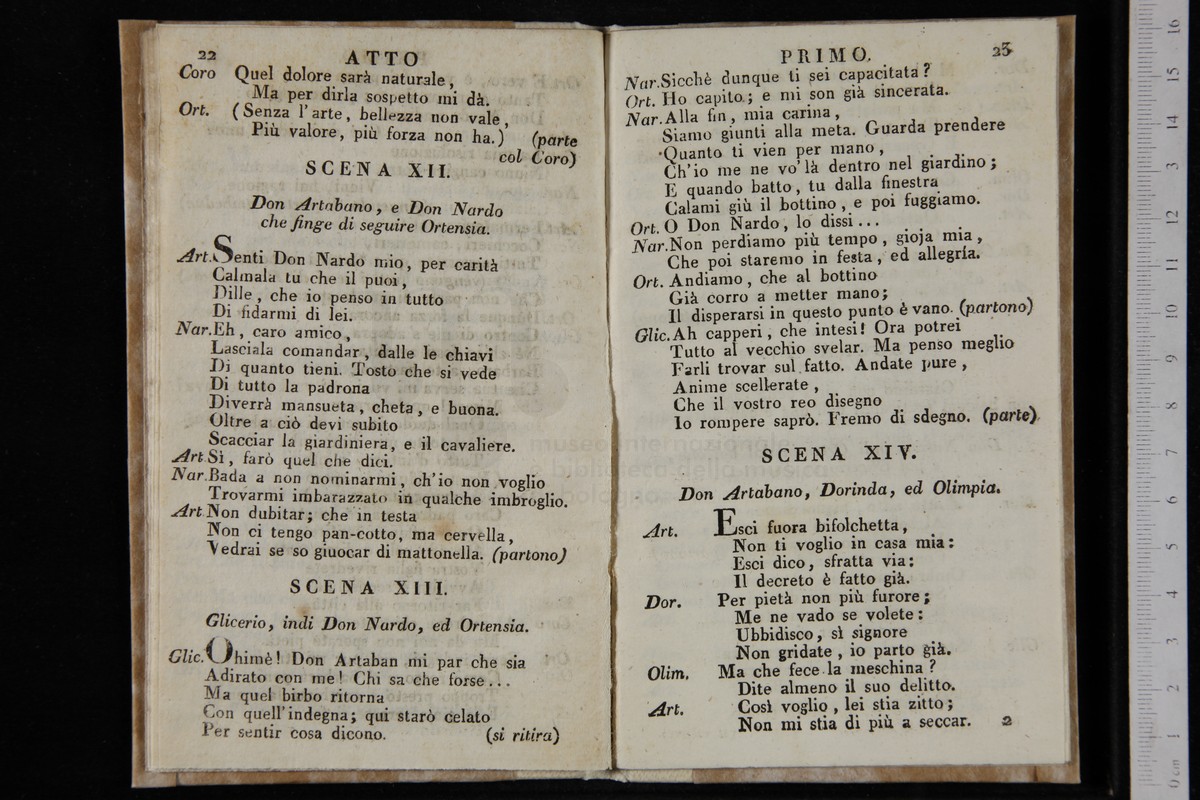 22 ATTO
Coro Quel dolore sarà naturale,
Ma per dirla sospetto mi dà.
Ort. (Senza l'arte, bellezza non vale,
Più valore, più forza non ha.) (parte
col Coro)
SCENA XII.
Don Artabano, e Don Nardo
che finge di seguire Ortensia.
Art. Senti Don Nardo mio, per carità
Calmala tu che il puoi,
Dille, che io penso in tutto
Di fidarmi di lei.
Nar. Eh, caro amico,
Lasciala comandar, dalle le chiavi
Di quanto tieni. Tosto che si vede
Di tutto la padrona
Diverrà mansueta, cheta, e buona.
Oltre a ciò devi subito
Scacciar la giardiniera, e il cavaliere.
Art. Sì, farò quel che dici.
Nar. Bada a non nominarmi, ch'io non voglio
Trovarmi imbarazzato in qualche imbroglio.
Art. Non dubitar; che in testa
Non ci tengo pan-cotto, ma cervella,
Vedrai se so giuocar di mattonella. (partono)
SCENA XIII.
Glicerio, indi Don Nardo, ed Ortensia.
Glic. Ohimè! Don Artaban mi par che sia
Adirato con me! Chi sa che forse...
Ma quel birbo ritorna
Con quell'indegna; qui starò celato
Per sentir cosa dicono. (si ritira)
PRIMO. 23
Nar. Sicchè dunque ti sei capacitata?
Ort. Ho capito; e mi son già sincerata.
Nar. Alla fin, mia carina,
Siamo giunti alla meta. Guarda prendere
Quanto ti vien per mano,
Ch'io me ne vo' là dentro nel giardino;
E quando batto, tu dalla finestra
Calami giù il bottino, e poi fuggiamo.
Ort. O Don Nardo, lo dissi...
Nar. Non perdiamo più tempo, gioja mia,
Che poi staremo in festa, ed allegria.
Ort. Andiamo, che al bottino
Già corro a metter mano;
Il disperarsi in questo punto è vano. (partono)
Glic. Ah capperi, che intesi! Ora potrei
Tutto al vecchio svelar. Ma penso meglio
Farli trovar sul fatto. Andate pure,
Anime scellerate,
Che il vostro reo disegno
Io rompere saprò. Fremo di sdegno. (parte)
SCENA XIV.
Don Artabano, Dorinda, ed Olimpia.
Art. Esci fuora bifolchetta,
Non ti voglio in casa mia:
Esci dico, sfratta via:
Il decreto è fatto già.
Dor. Per pietà non più furore;
Me ne vado se volete:
Ubbidisco, sì signore
Non gridate, io parto già.
Olim. Ma che fece la meschina?
Dite almeno il suo delitto.
Art. Così voglio, lei stia zitto;
Non mi stia di più a seccar. 2
museo internazionale
e biblioteca della musica
0 cm 1 2 3 4 5 6 7 8 9 10 11 12 13 14 15 16